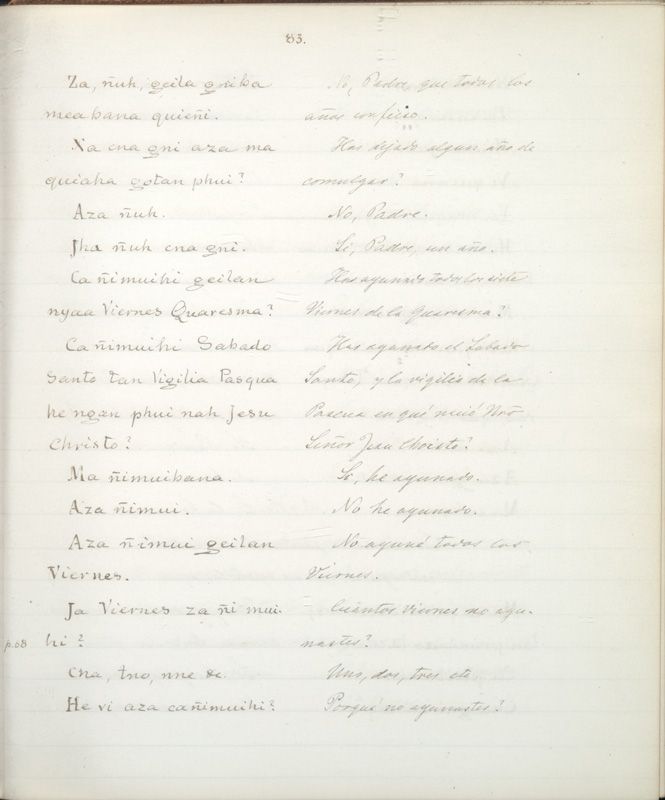 83.
Za, ñuh, geila gniba No, Padre, que todos los
meabana quieñi. años confieso.
Xa cna gni aza ma Has dejado algun año de
quiaha gotan phui? comulgar?
Aza ñuh. No, Padre.
Jha ñuh cna gñi. Si, Padre, un año.
Ca ñimuihi geilan Has ayunado todos los siete
nyaa Viernes Quaresma? Viernes de la Quaresma?
Ca ñimuihi Sabado Has ayunado el Sabado
Santo tan Vigilia Pasqua Santo, y la vigilia de la
he ngan phui nah Jesu Pascua en qué nació Nrô
Christo? Señor Jesu Christo?
Ma ñimuibana. Si, he ayunado.
Aza ñimui. No he ayunado.
Aza ñimui geilan No ayuné todos los
Viernes. Viernes.
Ja Viernes za ñi mui- Cuántos viernes no ayu-
p.08 hi? nastes?
Cna, tno, nne &c. Uno, dos, tres etc.
He vi aza cañimuihi? Porqué no ayunastes?